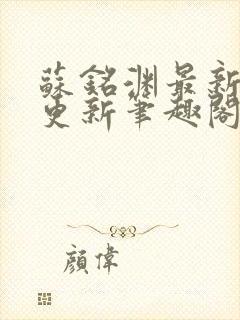 蘇銘淵最新
更新筆趣閣
顏偉